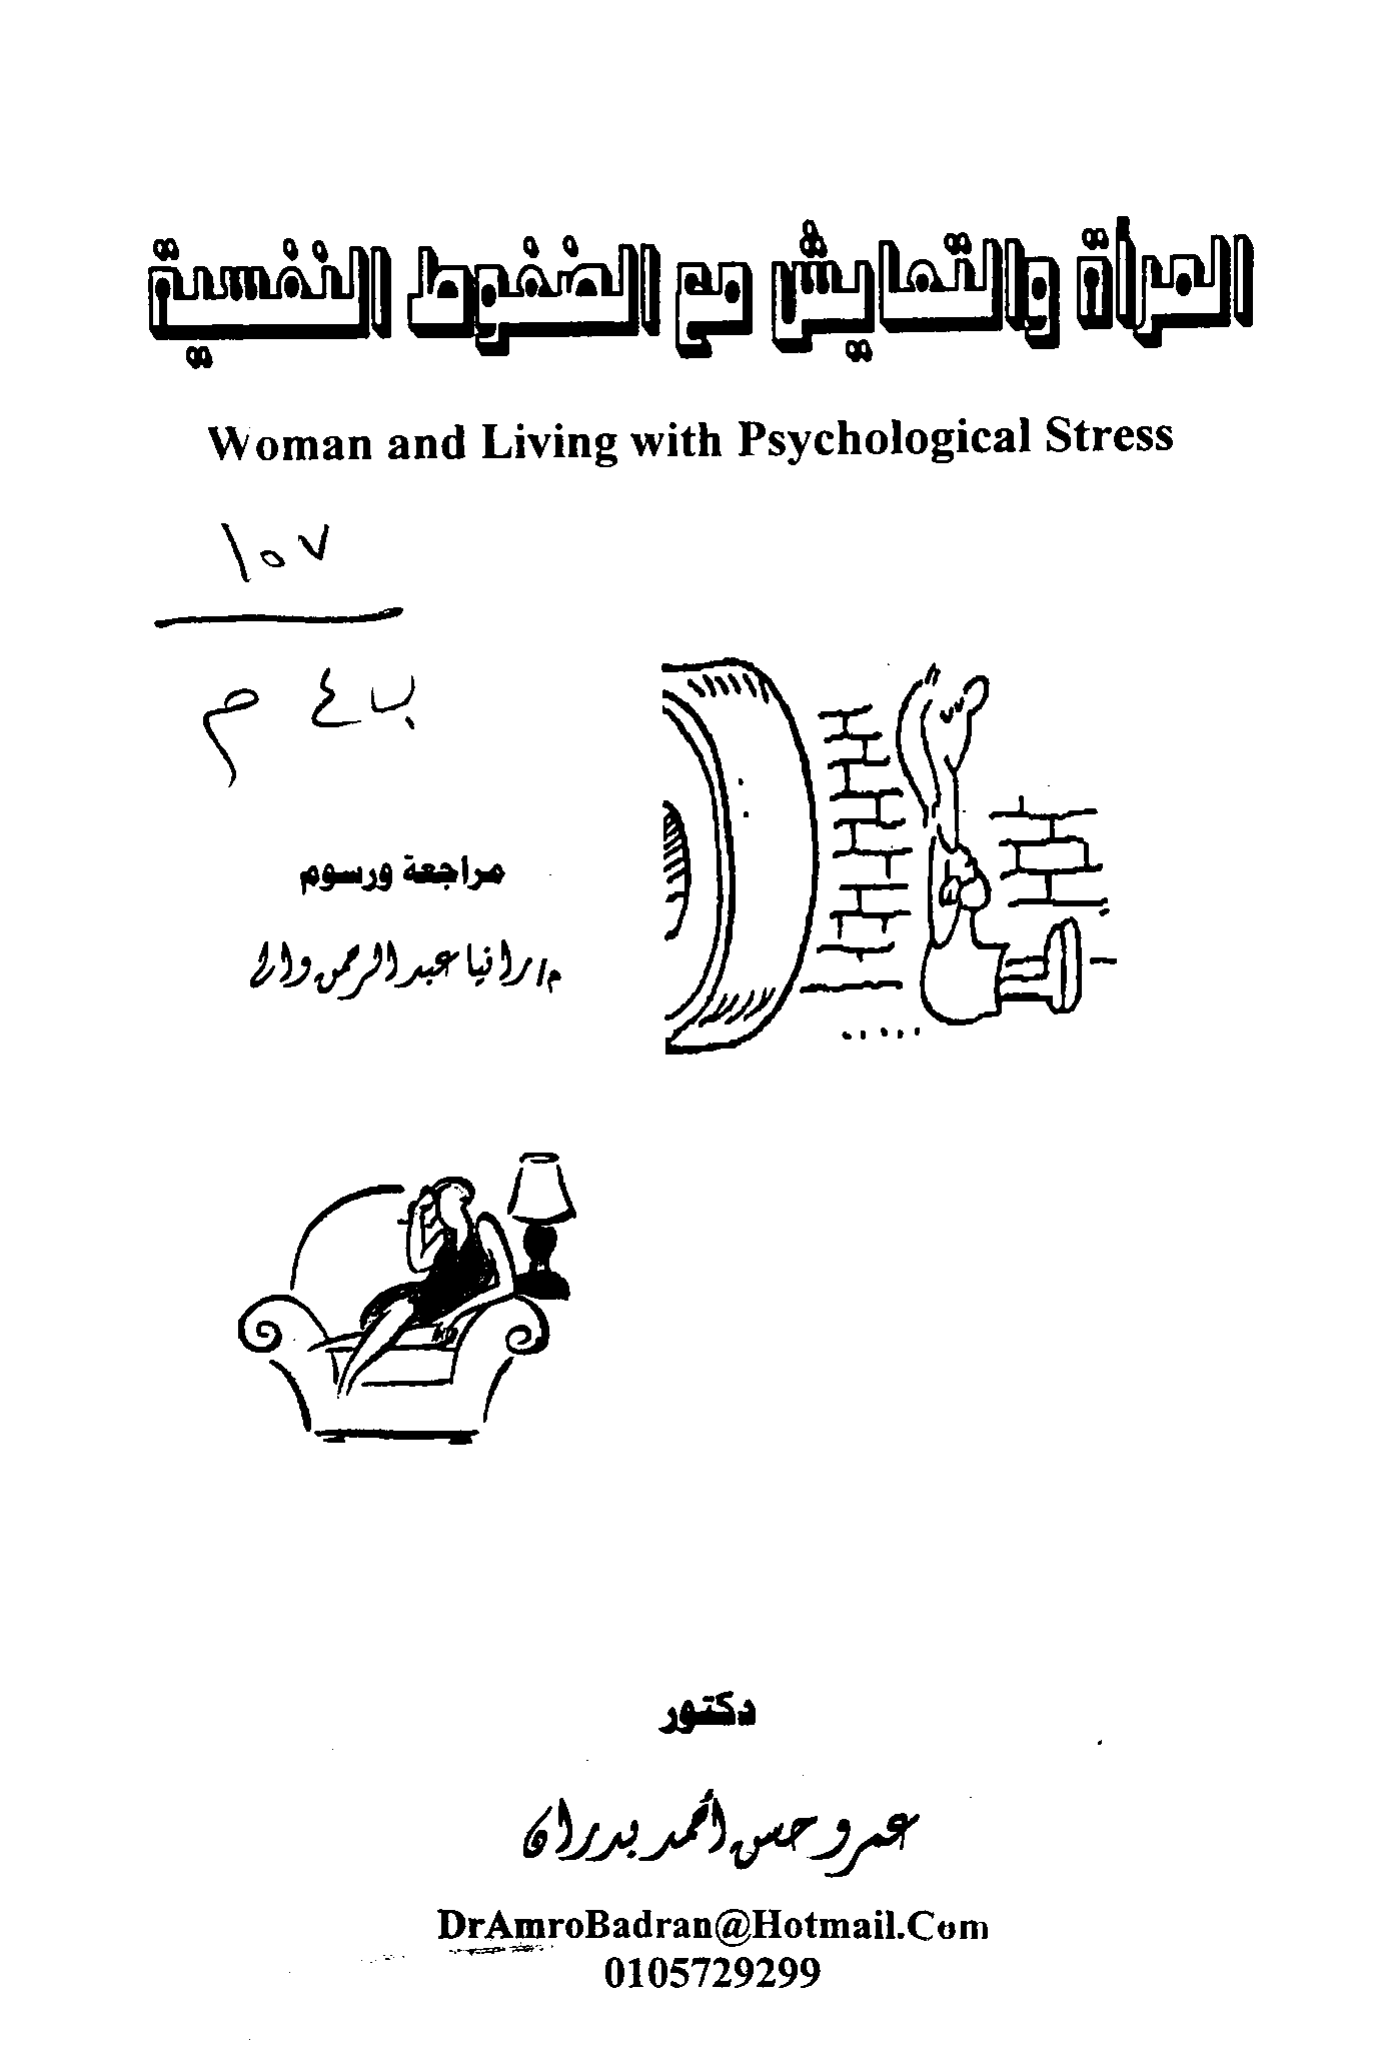 المرأة والتعايش مع الضغوط النفسية
Woman and Living with Psychological Stress
١٥٧
ب ٤ م
مراجعة ورسوم
م/رانيا عبد الرحمن والى
دكتور
عمرو حسن أحمد بدران
DrAmroBadran@Hotmail.Com
0105729299